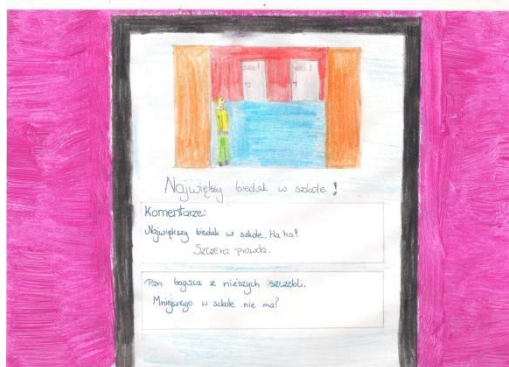 Największy biedak w szkole!
Komentarze:
Największy biedak w szkole. Ha ha!
Szczera prawda.
Pan bogacz z niższych szczebli.
Mniejszego w szkole nie ma!